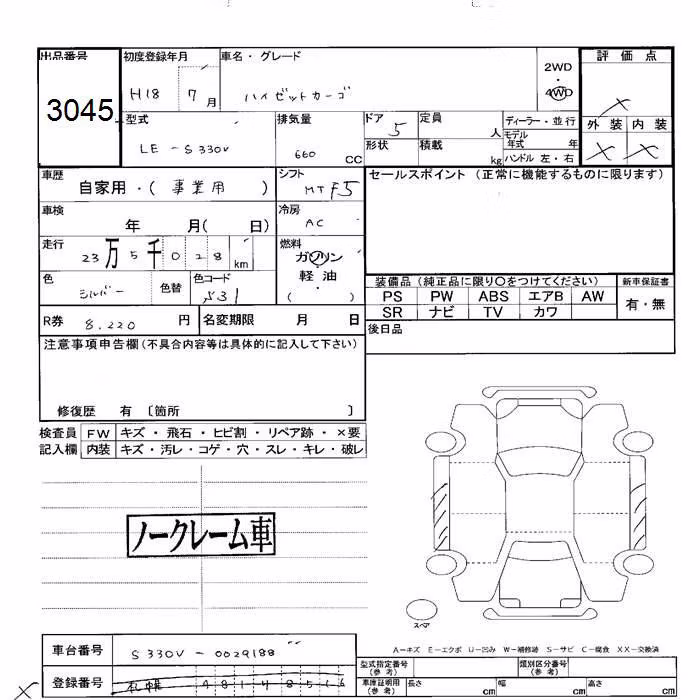 出品番号
3045
初度登録年月
H18 7月
車名・グレード
ハイゼットカーゴ
2WD
・
4WD
評価点
×
外装 内装
× ×
型式
LE-S330V
排気量
660 CC
ドア
5
定員
人
ディーラー・並行
モデル年式 年
形状
積載
kg
ハンドル 左・右
車歴
自家用・(事業用)
シフト
MT F5
セールスポイント (正常に機能するものに限ります)
車検
年 月( 日)
冷房
AC
走行
23万5千028km
燃料
ガソリン
・
軽油
・
( )
色
シルバー
色替
色コード
S31
装備品 (純正品に限り〇をつけてください)
新車保証書
PS PW ABS エアB AW
有・無
SR ナビ TV カワ
R券 8,220 円
名変期限 月 日
後日品
注意事項申告欄 (不具合内容等は具体的に記入して下さい)
修復歴 有 〔箇所 〕
検査員 FW キズ・飛石・ヒビ割・リペア跡・×要
記入欄 内装 キズ・汚レ・コゲ・穴・スレ・キレ・破レ
ノークレーム車
スペア
A−キズ E−エクボ U−凹み W−補修跡 S−サビ C−腐食 XX−交換済
車台番号 S330V-0029188
登録番号 札幌
型式指定番号(参考)
類別区分番号(参考)
車庫証明用(参考) 長さ cm 幅 cm 高さ cm
×